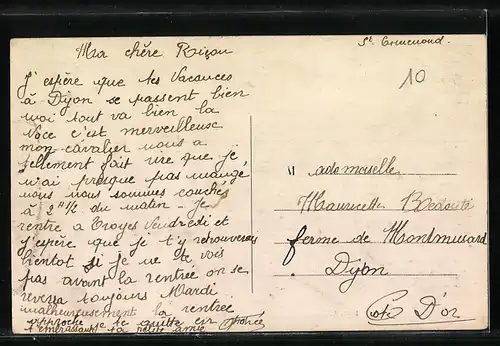 Ma chère Riçou
J'espère que tes Vacances
à Dijon se passent bien
moi tout va bien la
Noce c'est merveilleuse
mon cavalier nous a
tellement fait rire que je
n'ai presque pas mangé
nous nous sommes couchés
à 2 h 1/2 du matin - je
rentre à Troyes Vendredi et
j'espère que je t'y retrouverais
bientôt si je ne te vois
pas avant la rentrée on se
reverra toujours Mardi
malheureusement la rentrée
approche je te quitte en
t'embrassant ta petite amie
St.
10
Mademoiselle
Mauricette
ferme de Montmusard
Dijon
Côte D'or